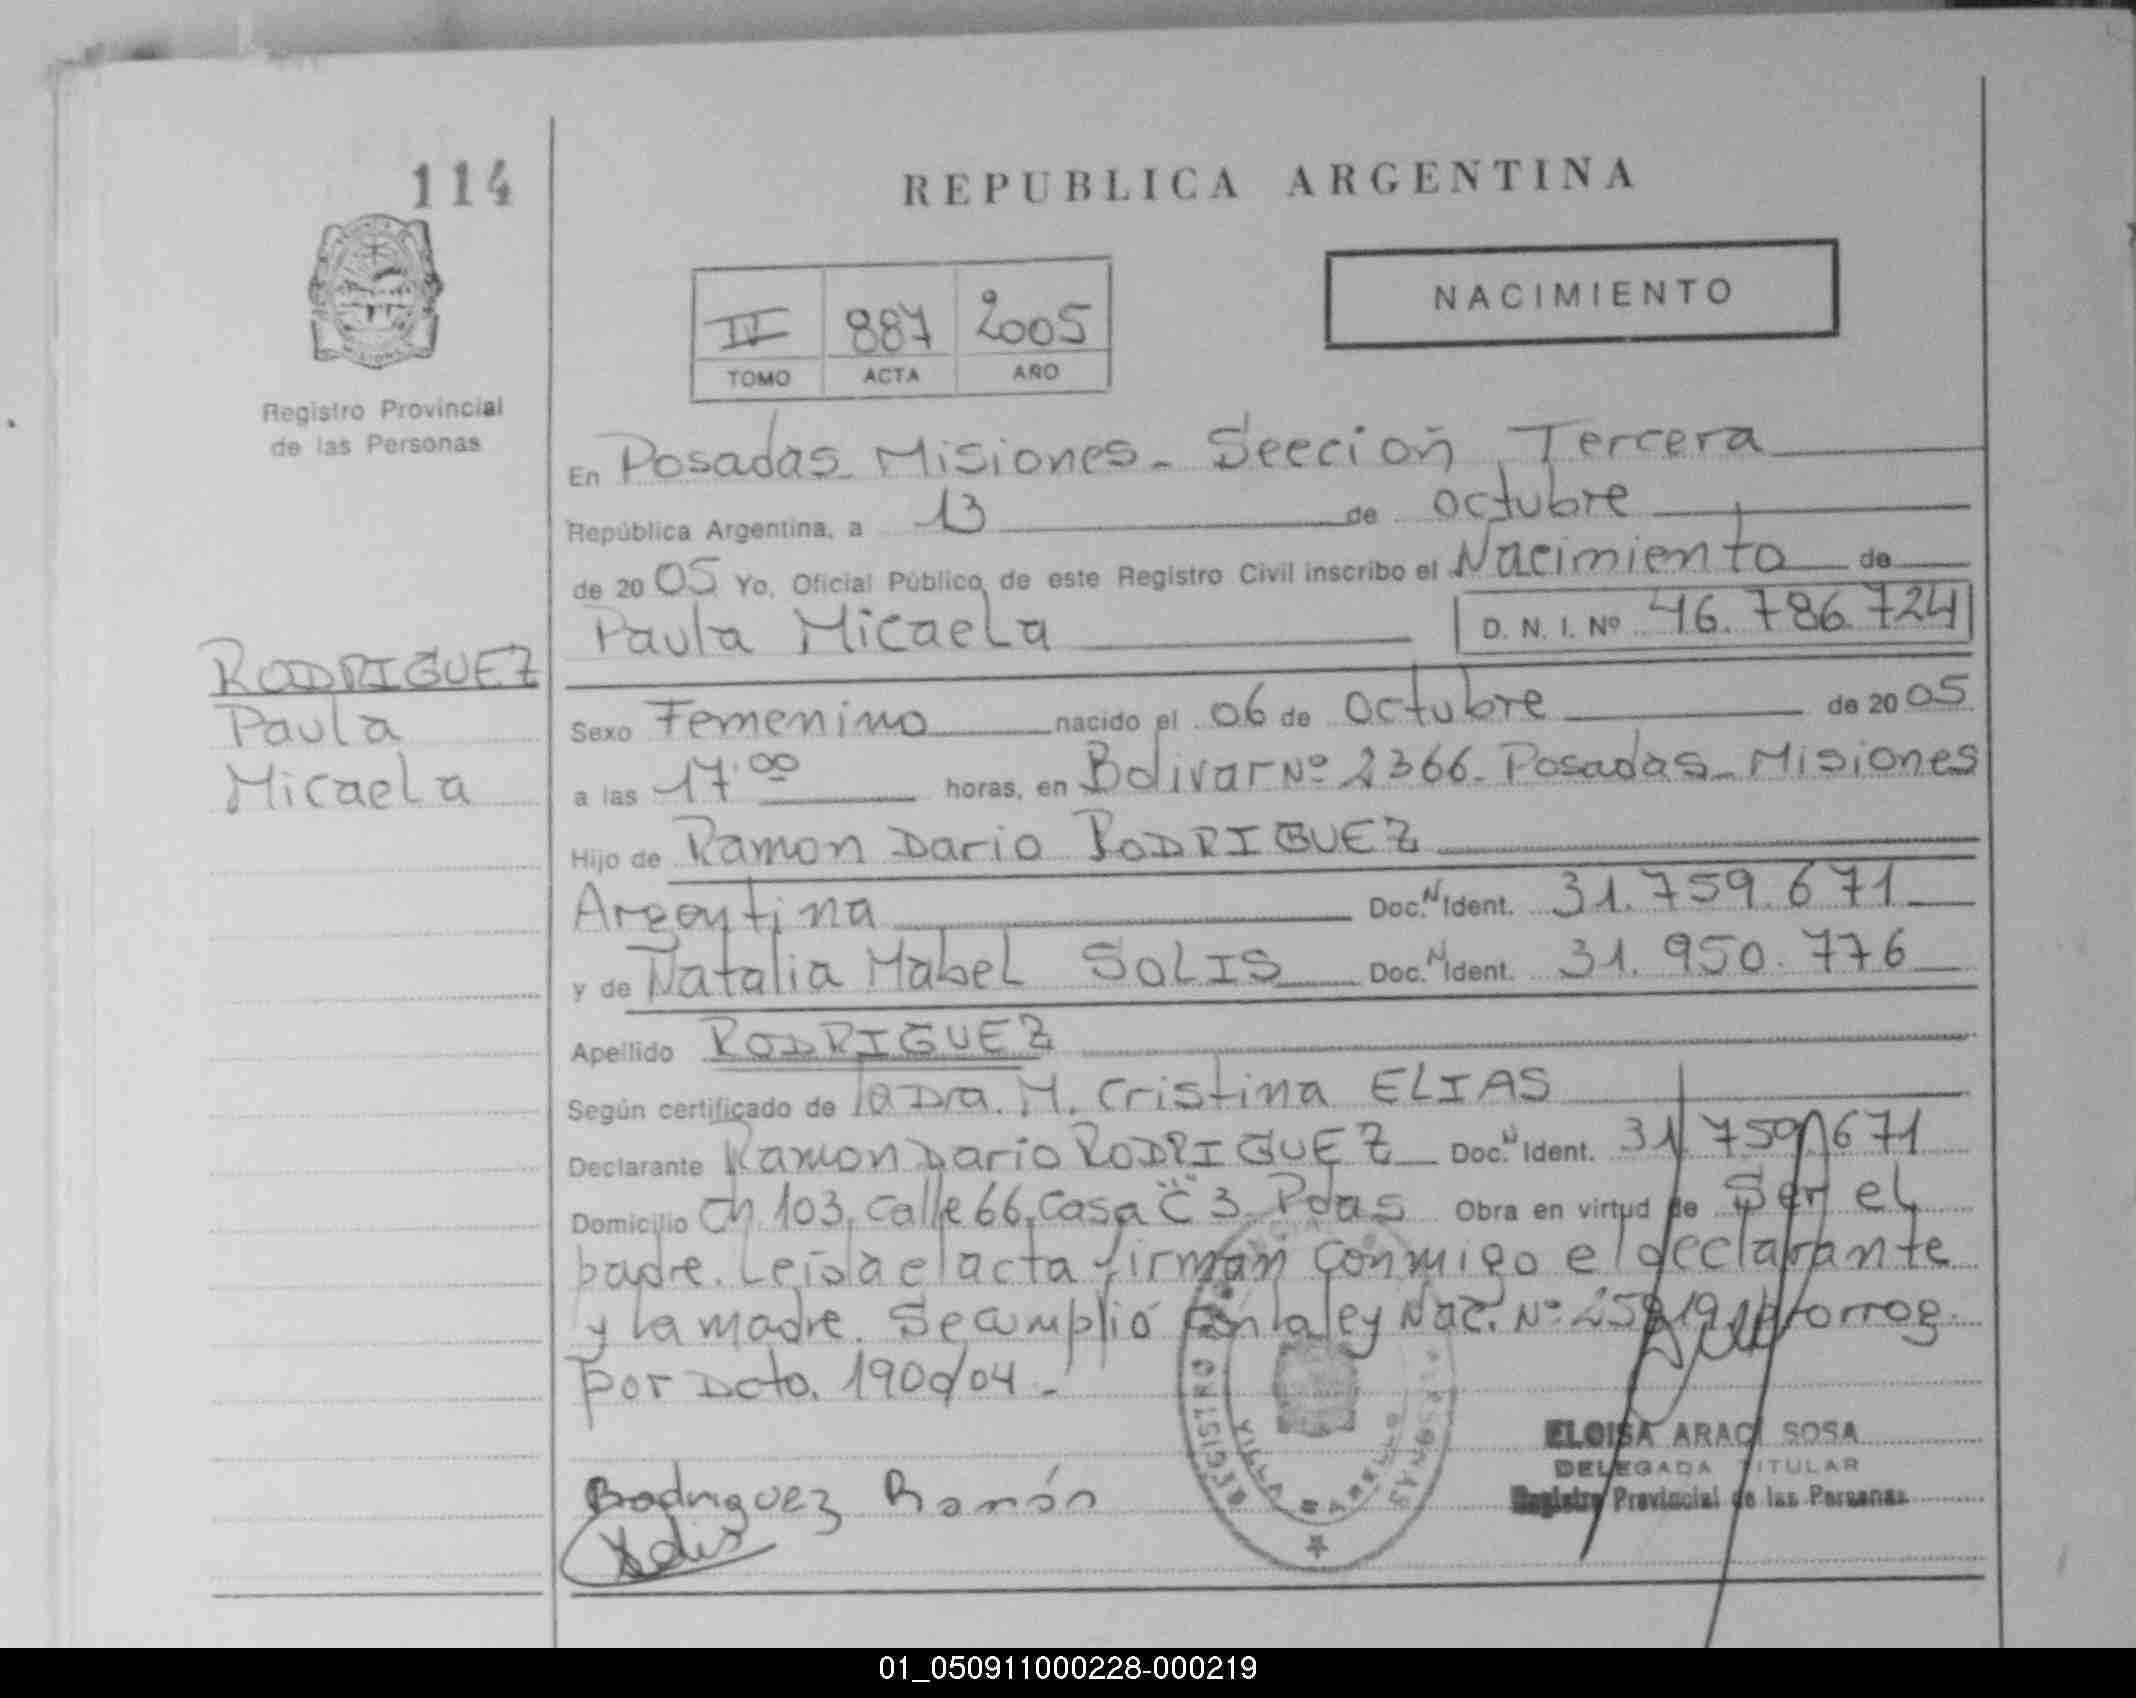 114
REPUBLICA ARGENTINA
NACIMIENTO
IV 887 2005
TOMO ACTA AÑO
Registro Provincial
de las Personas
En Posadas Misiones - Sección Tercera
República Argentina, a 13 de octubre
de 2005 Yo, Oficial Público de este Registro Civil inscribo el Nacimiento de
Paula Micaela D. N. I. Nº 46.786.724
RODRIGUEZ
Paula
Micaela
Sexo Femenino nacido el 06 de octubre de 2005
a las 17:00 horas, en Bolivar Nº 2366. Posadas - Misiones
Hijo de Ramon Dario RODRIGUEZ
Argentina Doc. N Ident. 31.759.671
y de Natalia Mabel SOLIS Doc. N Ident. 31.950.776
Apellido RODRIGUEZ
Según certificado de la Dra. M. Cristina ELIAS
Declarante Ramon Dario RODRIGUEZ Doc. N Ident. 31.759.671
Domicilio Ch. 103, calle 66, casa "C" 3 Pdas Obra en virtud de Ser el
padre. Leída el acta firman conmigo el declarante
y la madre. Se cumplió con la ley Nac. Nº prorrog.
por Dcto. 1900/04 -
ELOISA ARACI SOSA
DELEGADA TITULAR
Registro Provincial de las Personas
Rodriguez Ramón
Solis
REGISTRO
VILLA
01_050911000228-000219